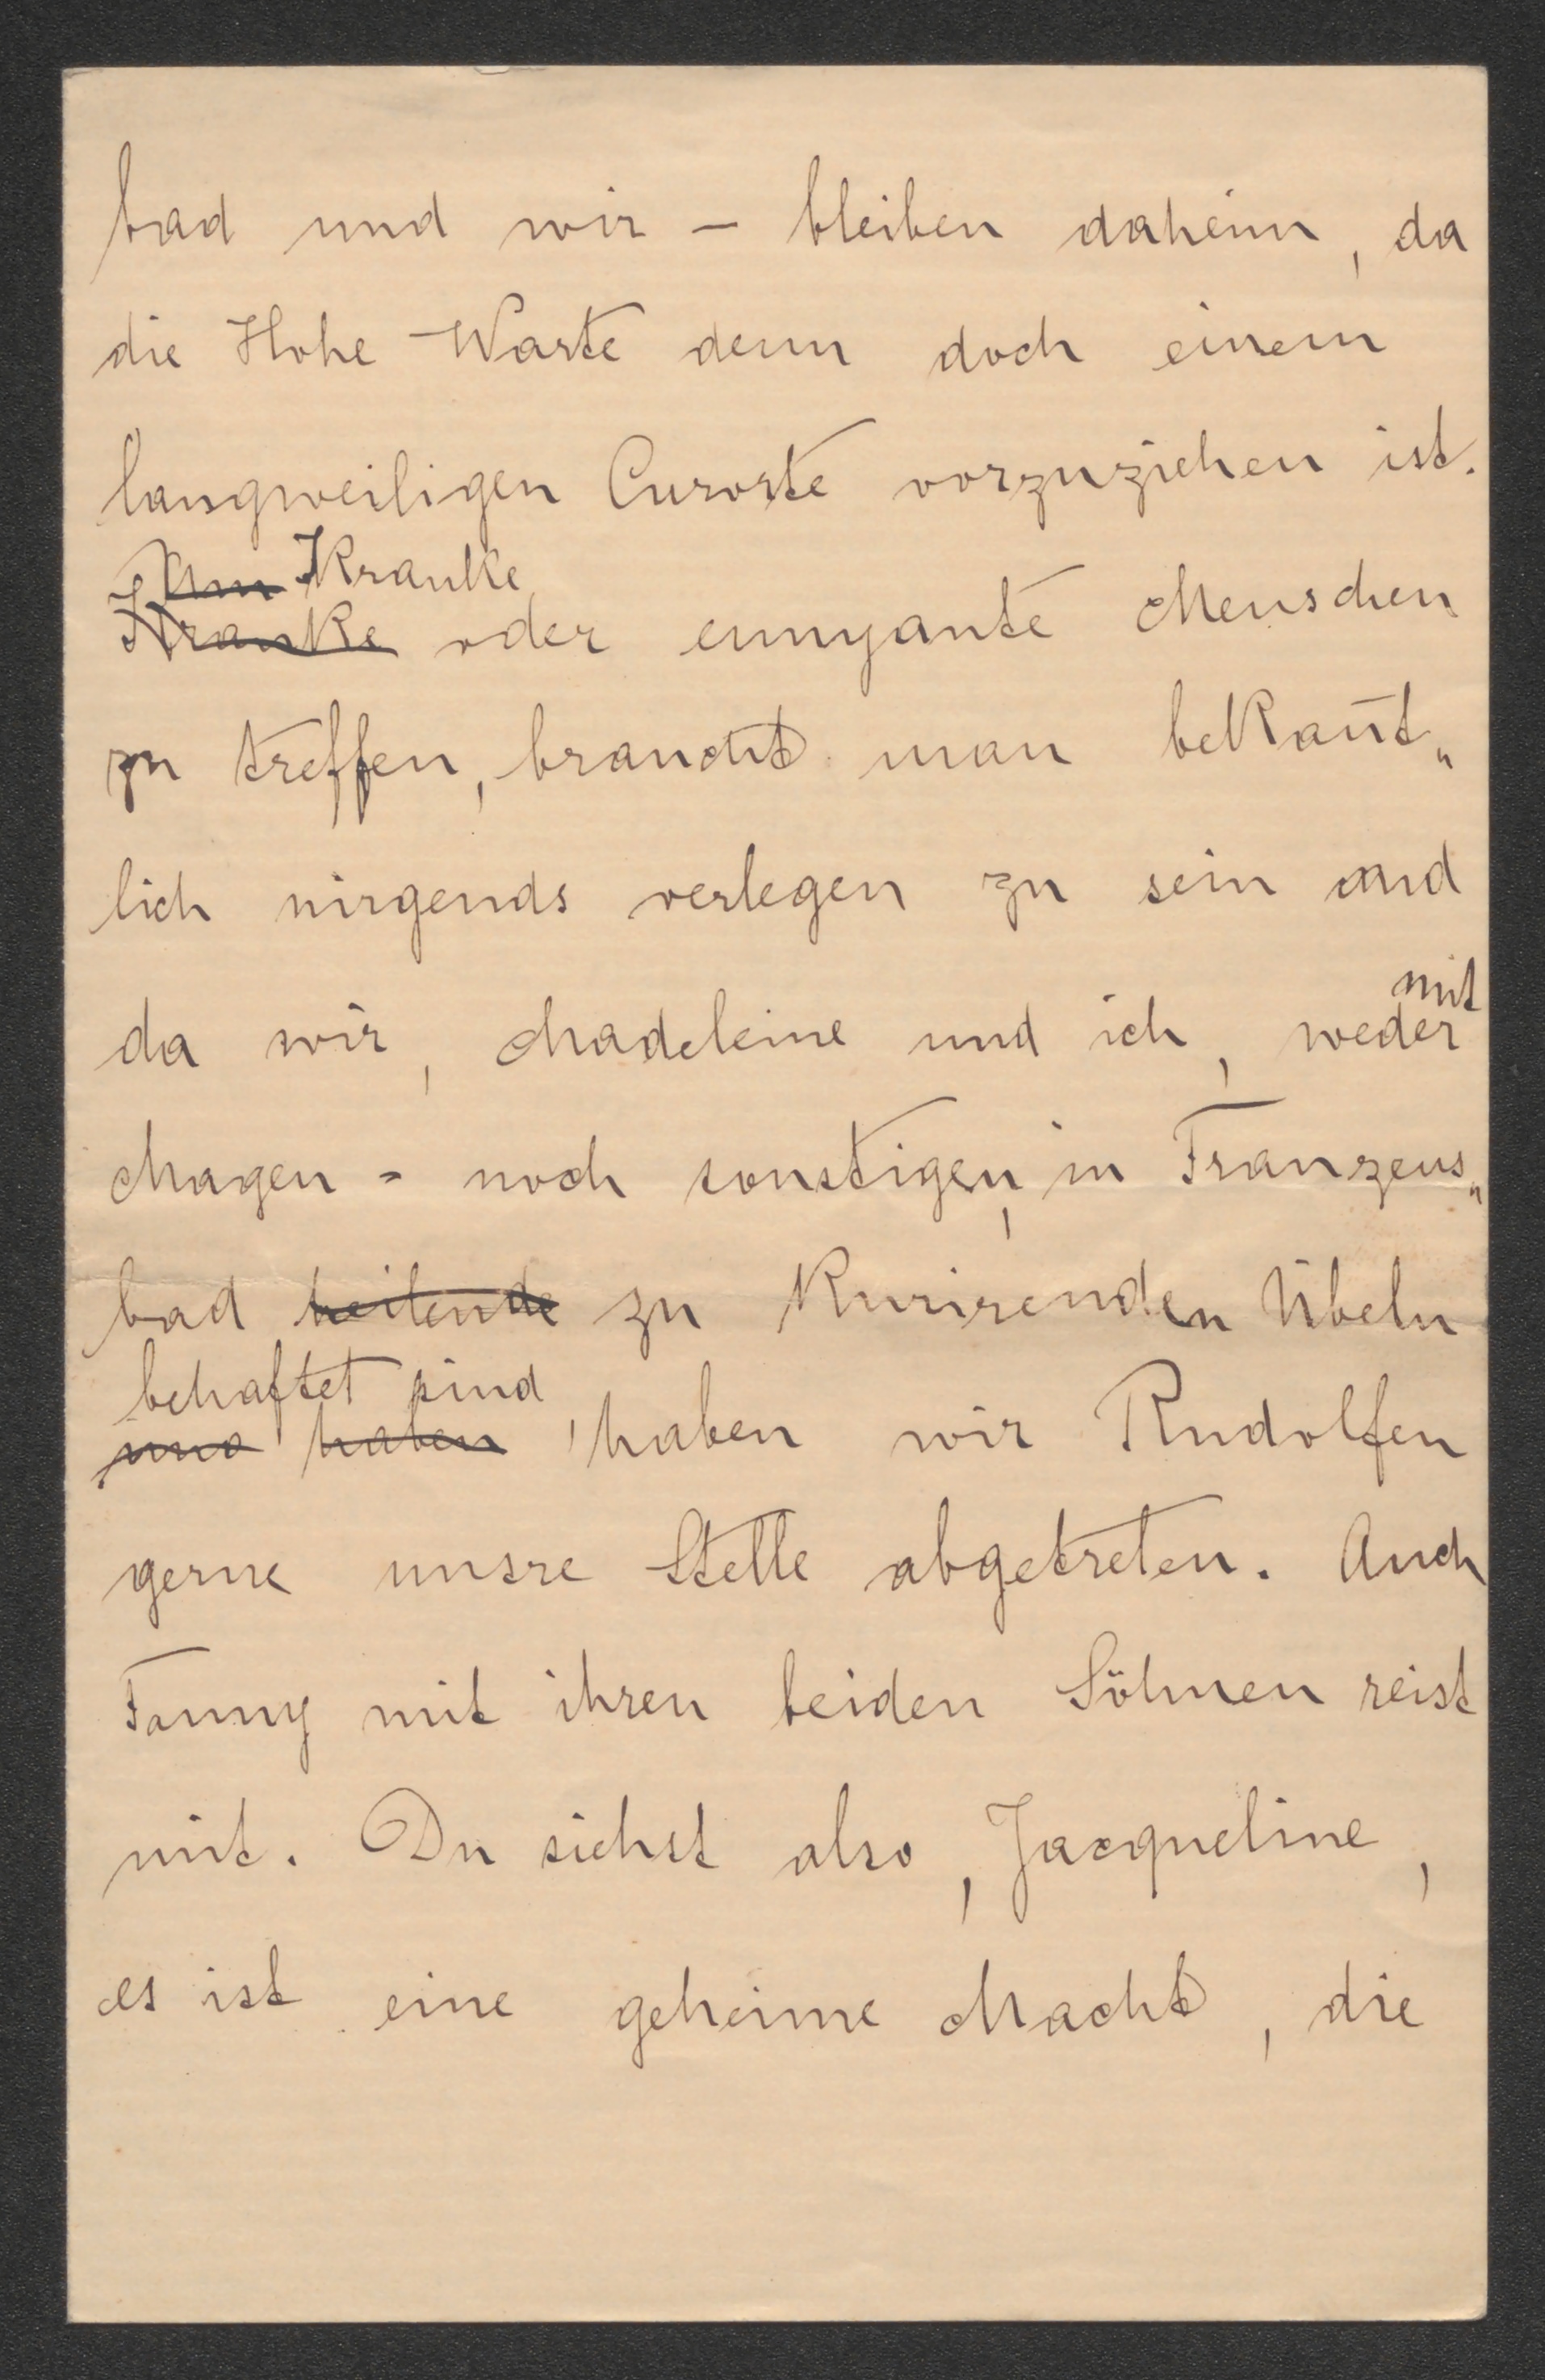 bad und wir – bleiben daheim, da
die Hohe Warte denn doch einem
langweiligen Curorte vorzuziehen ist.
Um Kranke
Kranke oder ennyante Menschen
zu treffen, braucht man bekan̄t„
lich nirgends verlegen zu sein und
mit
da wir, Madeleine und ich, weder
Magen - noch sonstigen, in Franzens„
bad heilende zu kurirenden Übeln
behaftet sind
und haben, haben wir Rudolfen
gerne unsre Stelle abgetreten. Auch
Fanny mit ihren beiden Söhnen reist
mit. Du siehst also, Jacqueline,
es ist eine geheime Macht, die